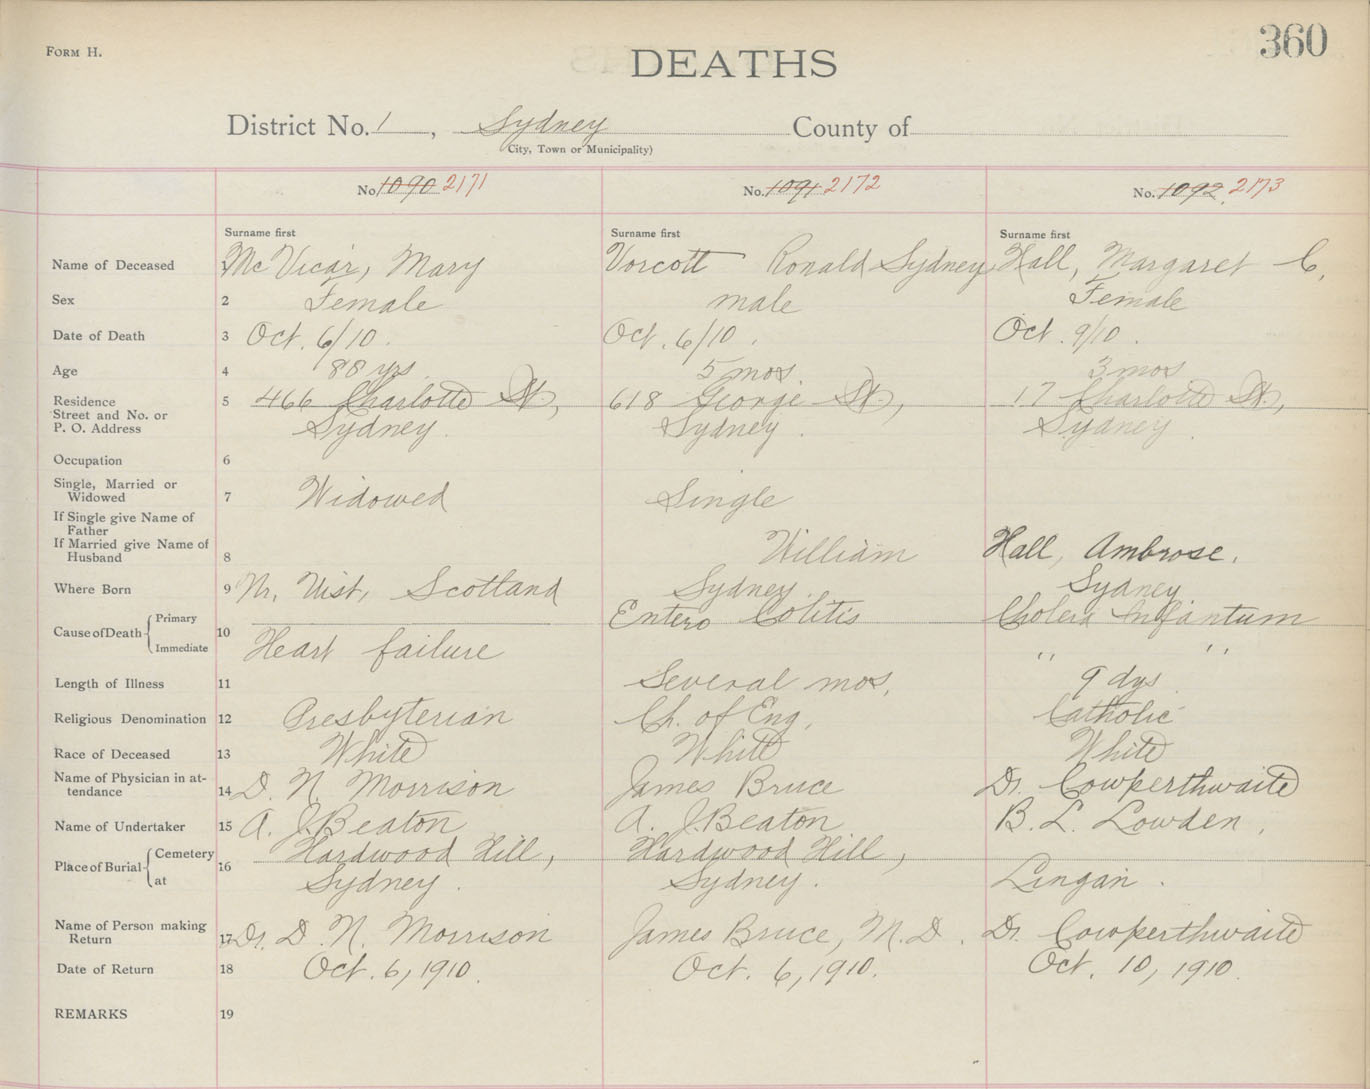 FORM H.
360
DEATHS
District No. 1, Sydney County of
City, Town or Municipality)
No. 1090 2171 No. 1091 2172 No. 1092 2173
Surname first Surname first Surname first
Name of Deceased 1 McVicar, Mary Vorcott Ronald Sydney Hall, Margaret C.
Sex 2 Female male Female
Date of Death 3 Oct. 6/10. Oct. 6/10. Oct. 9/10.
Age 4 88 yrs. 5 mos 3 mos
Residence 5 466 Charlotte St., 618 George St., 17 Charlotte St.,
Street and No. or
P. O. Address Sydney. Sydney. Sydney.
Occupation 6
Single, Married or
Widowed 7 Widowed Single
If Single give Name of
Father
If Married give Name of
Husband 8 William Hall, Ambrose.
Where Born 9 Nr. Uist, Scotland Sydney. Sydney
Cause of Death Primary 10 Entero Colitis Cholera Infantum
Immediate Heart failure " "
Length of Illness 11 Several mos. 9 dys
Religious Denomination 12 Presbyterian Ch. of Eng. Catholic
Race of Deceased 13 White White White
Name of Physician in at-
tendance 14 D. N Morrison James Bruce Dr. Cowperthwaite
Name of Undertaker 15 A. J. Beaton A. J. Beaton B. L. Lowden,
Place of Burial Cemetery 16 Hardwood Hill, Hardwood Hill,
at Sydney. Sydney. Lingan.
Name of Person making
Return 17 Dr. D. N. Morrison James Bruce, M.D. Dr. Cowperthwaite
Date of Return 18 Oct. 6, 1910. Oct. 6, 1910. Oct. 10, 1910.
REMARKS 19